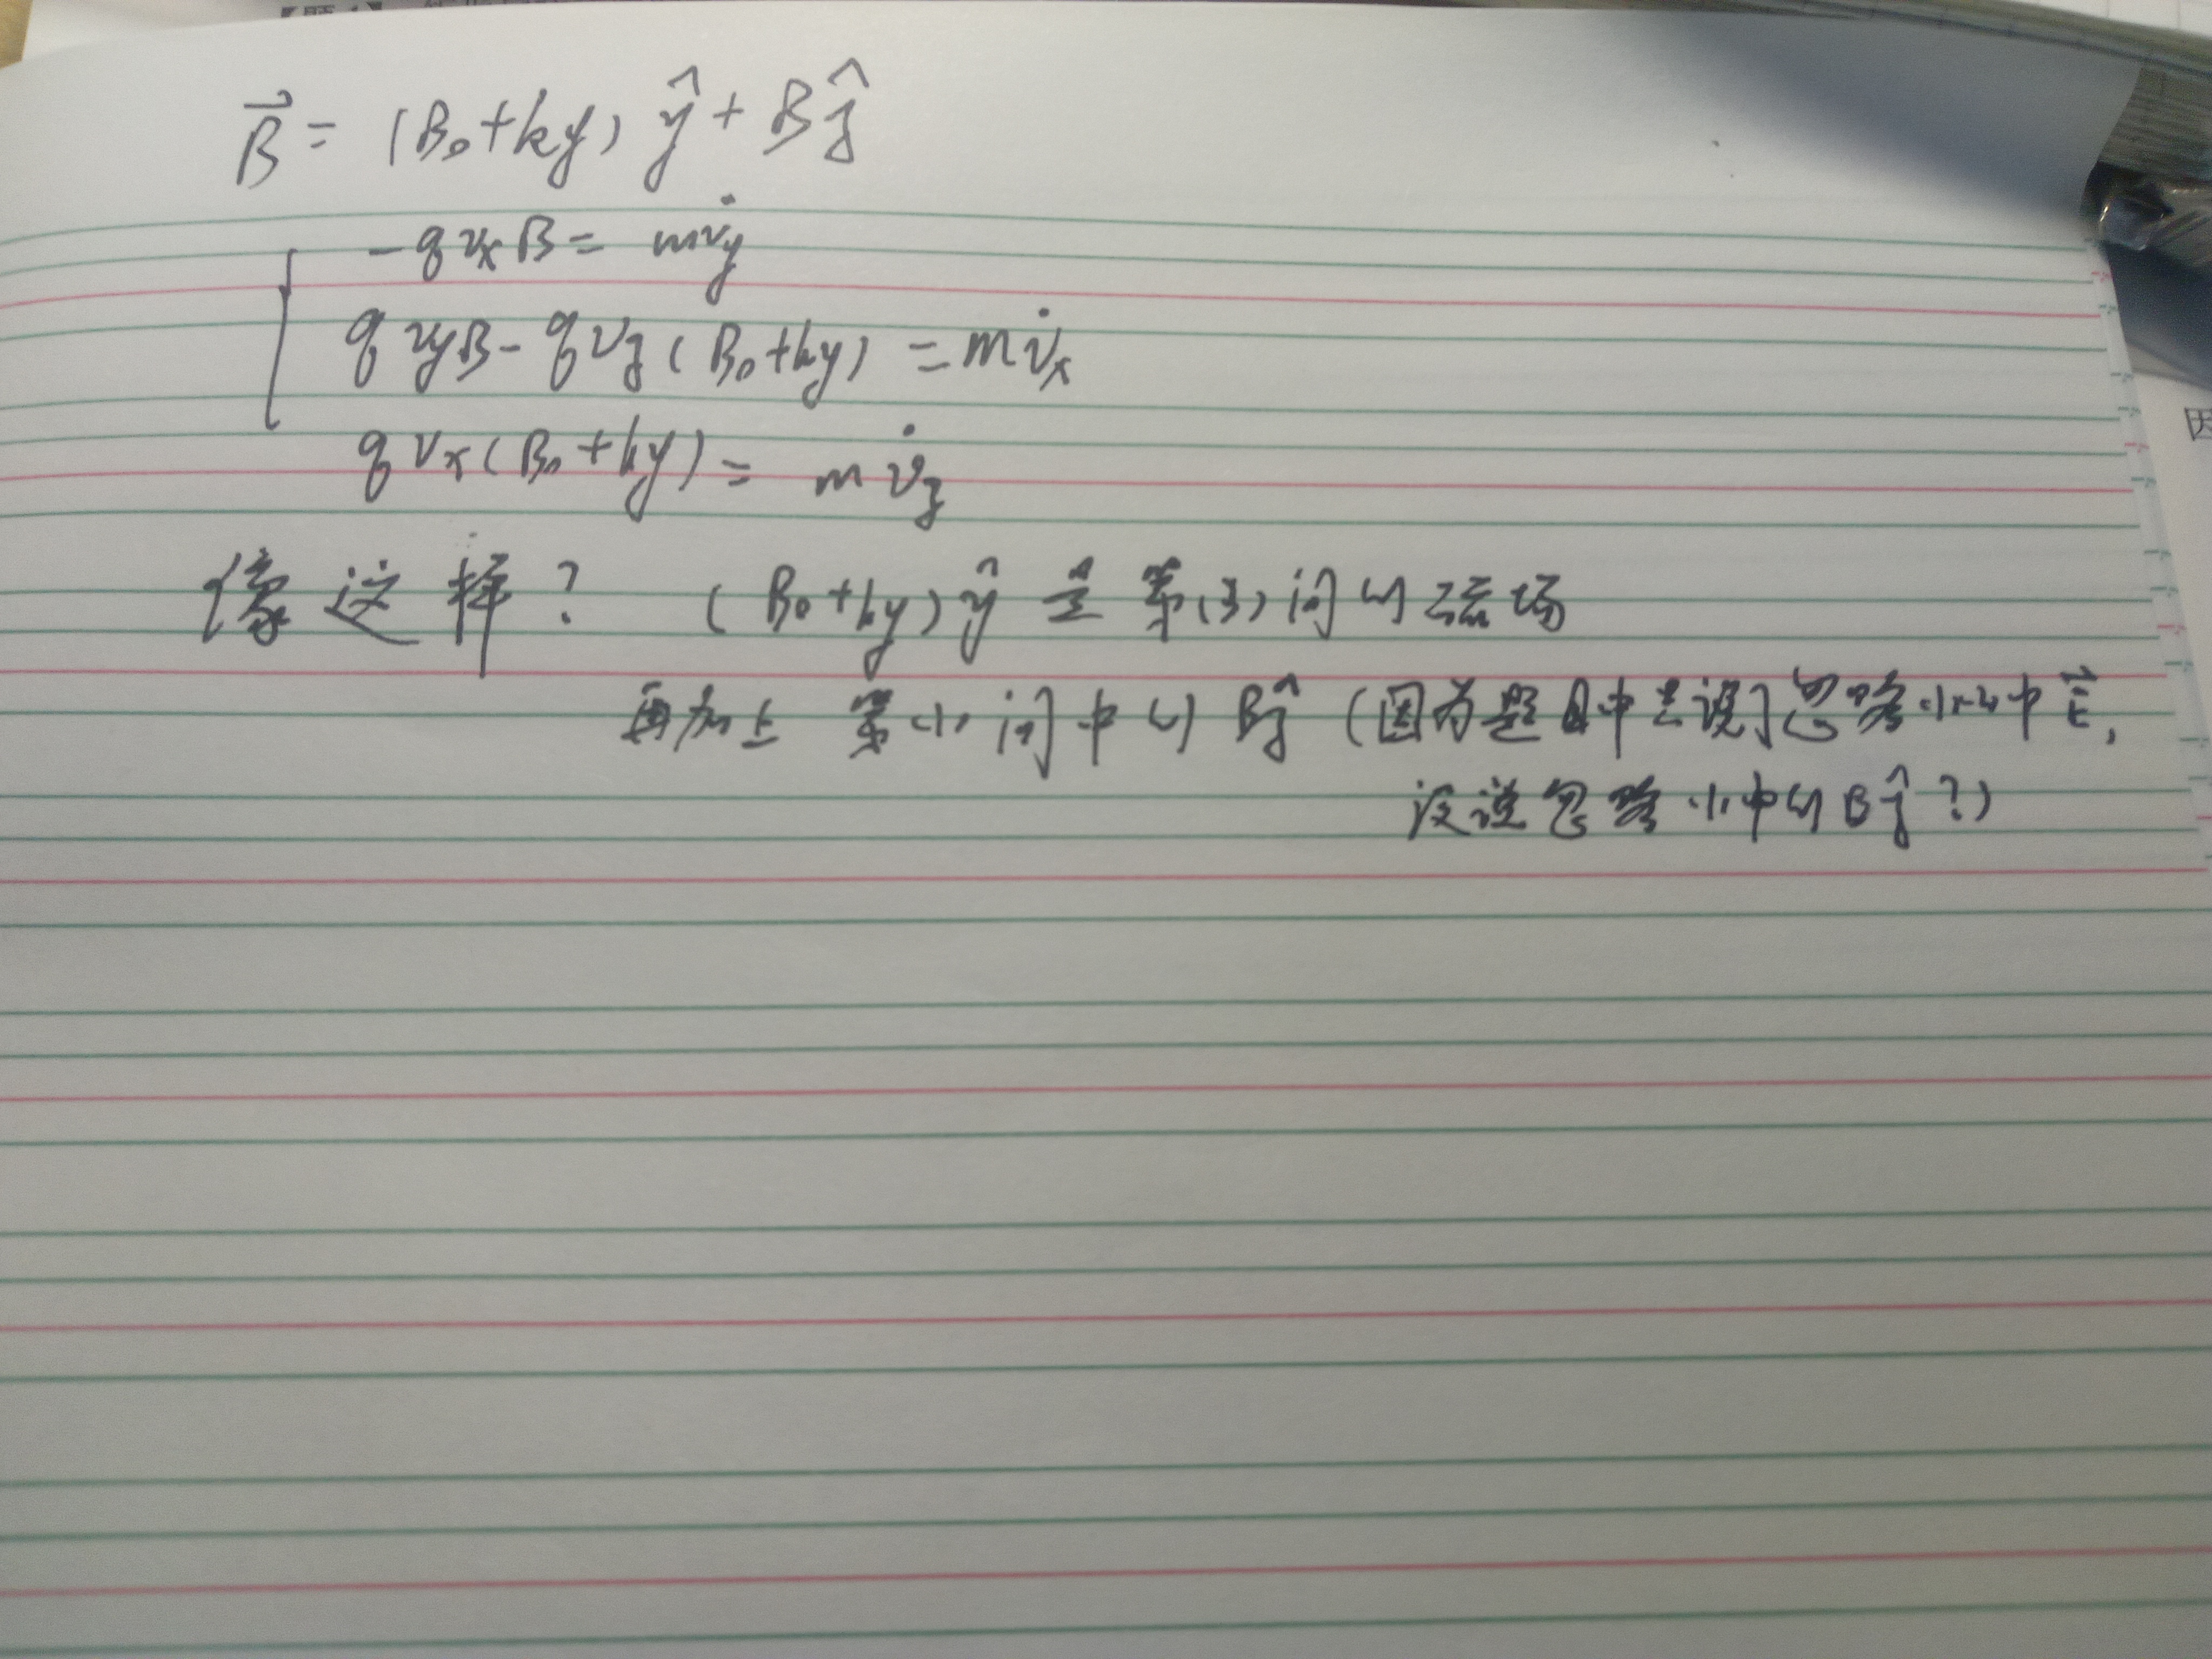 B⃗ = (B₀+ky) ŷ + B ẑ
-qvₓB = mv̇_y
qv_yB - qv_z(B₀+ky) = mv̇ₓ
qvₓ(B₀+ky) = mv̇_z
像这样? (B₀+ky)ŷ 是第(3)问的磁场
再加上第(1)问中的Bẑ (因为题目中只说了忽略(1)(2)中E⃗,
没说忽略(1)中的Bẑ?)
因